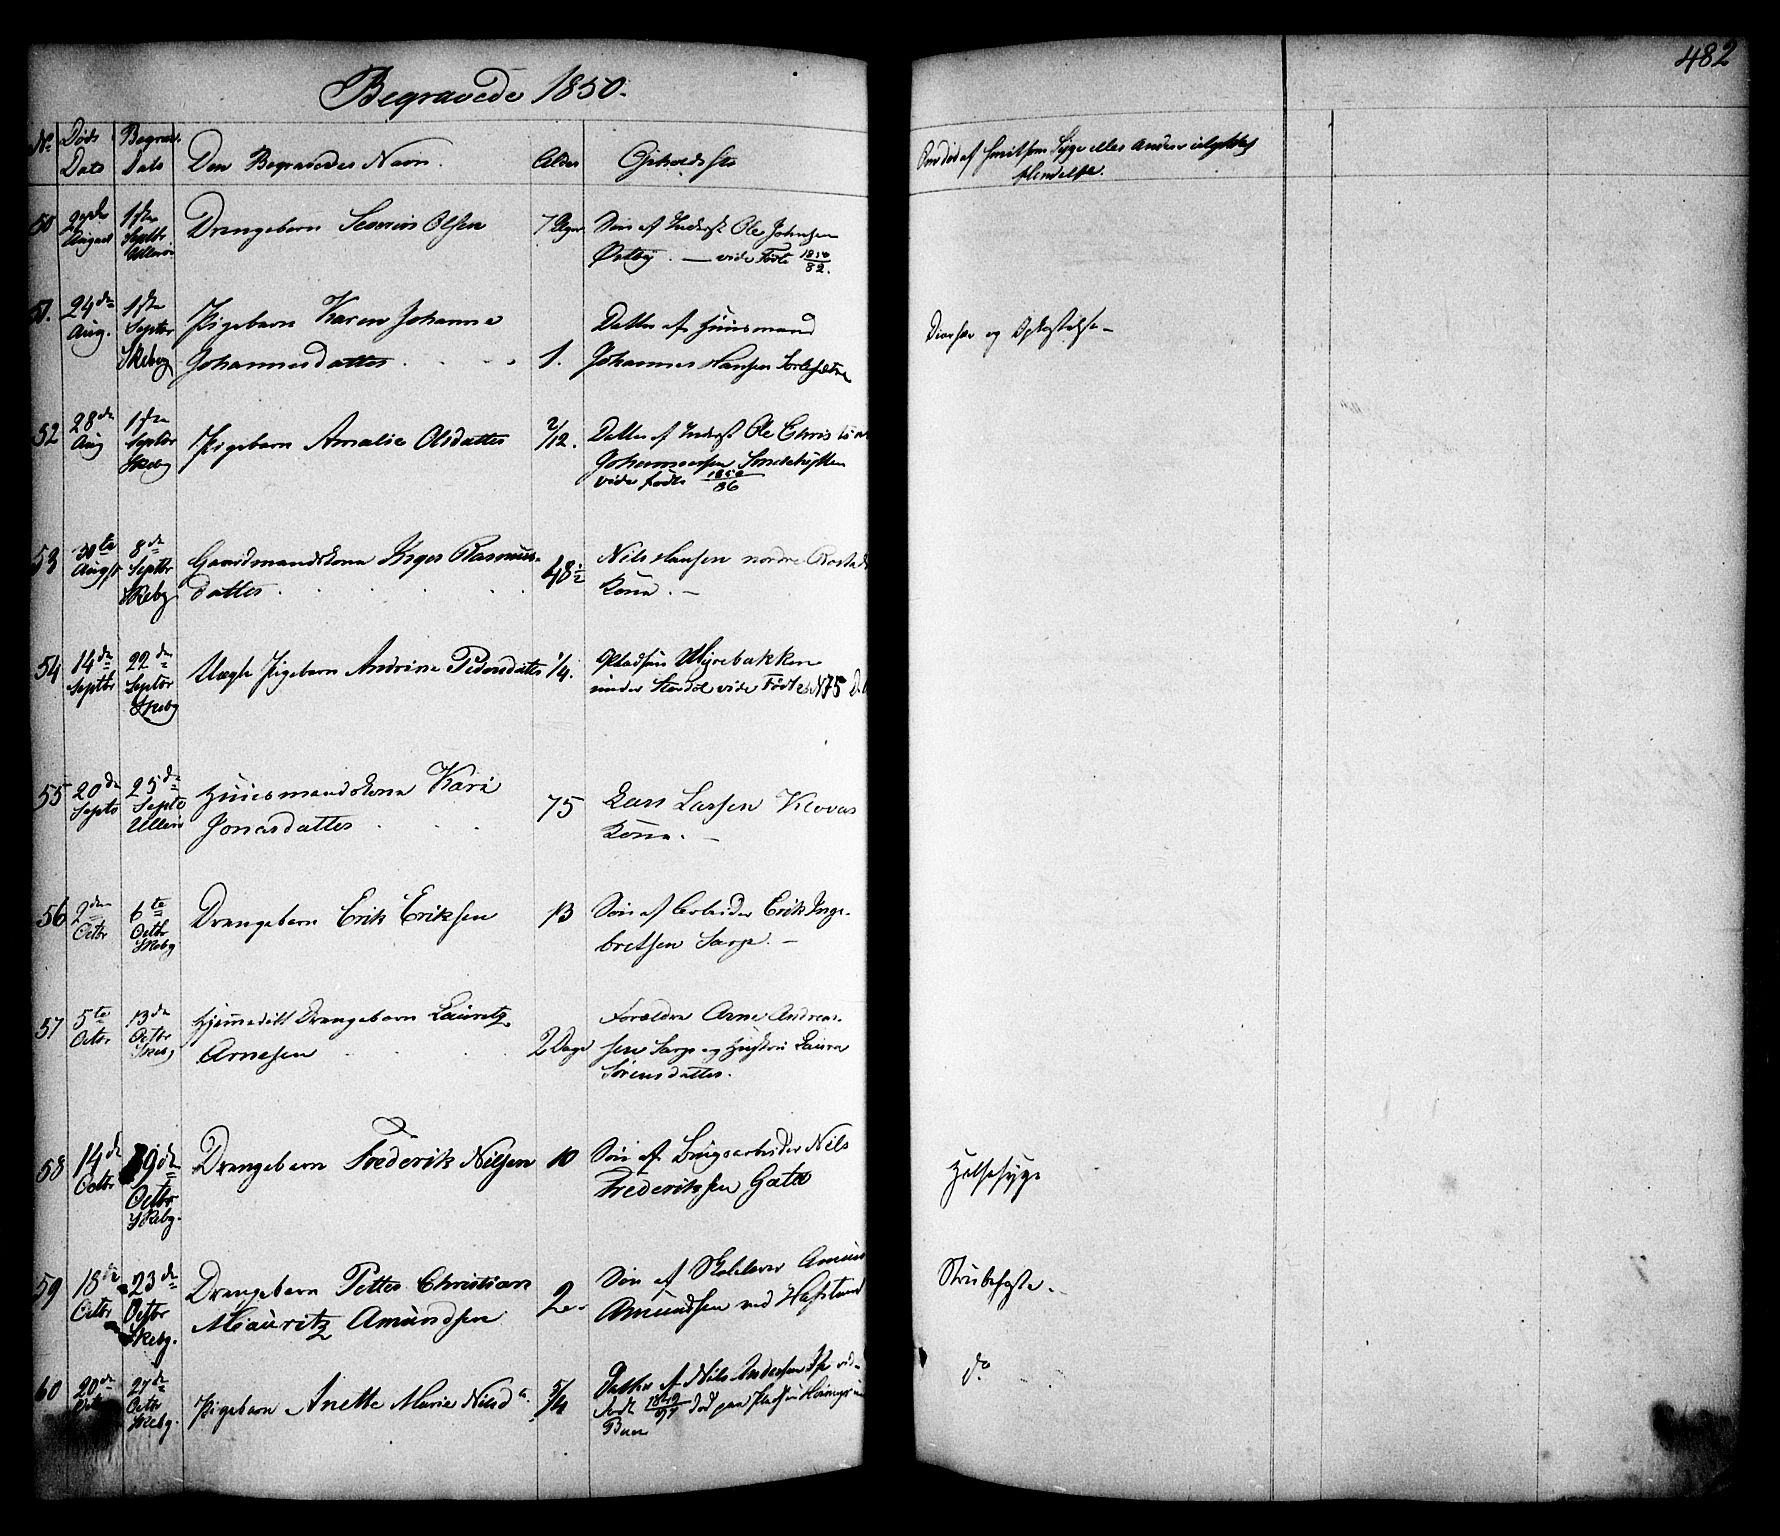 482
Begravede 1850.
No Døds Dato Begrav. Dato Den Begravedes Navn. Alder Opholdssted
Om død af smitsom Syge eller anden
Hendelse.
50 August 1ste Septbr Drengebarn Severin Olsen 7 Uger Søn af Inderst Ole Johnsen
Østby. — vide Fødte 1850/82.
51. 24de Aug. 1ste Septbr Skebg Pigebarn Karen Johanne
Johannesdatter . . . 1. Datter af Huusmand
Johannes Hansen
Diarhee og Opkastelse —
52 28de Aug 1ste Septbr Skebg Pigebarn Amalie Olsdatter 2/12. Datter af Inderst Ole Chris
Johannessen
vide fødte 1850/86
53 30te Augst 8de Septbr Skebg Gaardmandskona Inger Rasmus-
datter . . . . 48½ Nils Hansen nordre
Kona. —
54 14de Septbr 22de Septbr Skebg Uægte Pigebarn Andrine Pedersdatter 1/4. Pladsen Myrebakken
under vide Fødte N 75
55 20de Septb 25de Septb Ullerø Huusmandskona Kari
Jonasdatter . . . 75 Lars Larsen Klovas
Kona. —
56 2den Octbr 6te Octbr Skebg Drengebarn Erik Eriksen 13 Søn af Arbeider Erik Inge-
bretsen Sarp. —
57 5te Octbr 13de Octbr Skebg Hjemmedøbt Drengebarn Lauritz
Arnesen . . . 2 Dage Forældre Arne Andrea-
sen Sarp og Hustru Laura
Sørensdatter.
58 14de Octbr 19de Octbr Skebg. Drengebarn Frederik Nilsen 10 Søn af Brugsarbeider Nils
Frederiksen Gatu
Halssyge
59 18de Octbr 23de Octbr Skebg. Drengebarn Petter Christian
Mauritz Amundsen 2 Søn af Skolelærer Amun
Amundsen ved Hafslund
Strubehoste. —
60 20de 27de Octbr Skebg. Pigebarn Anette Marie Nilsd. 5/4 Datter af Nils Andersen
født 1849/97 død paa Pladsen
do